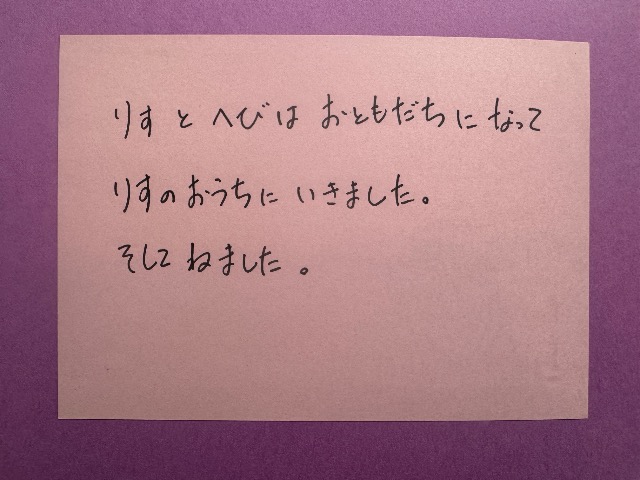 りすとへびはおともだちになって
りすのおうちにいきました。
そしてねました。